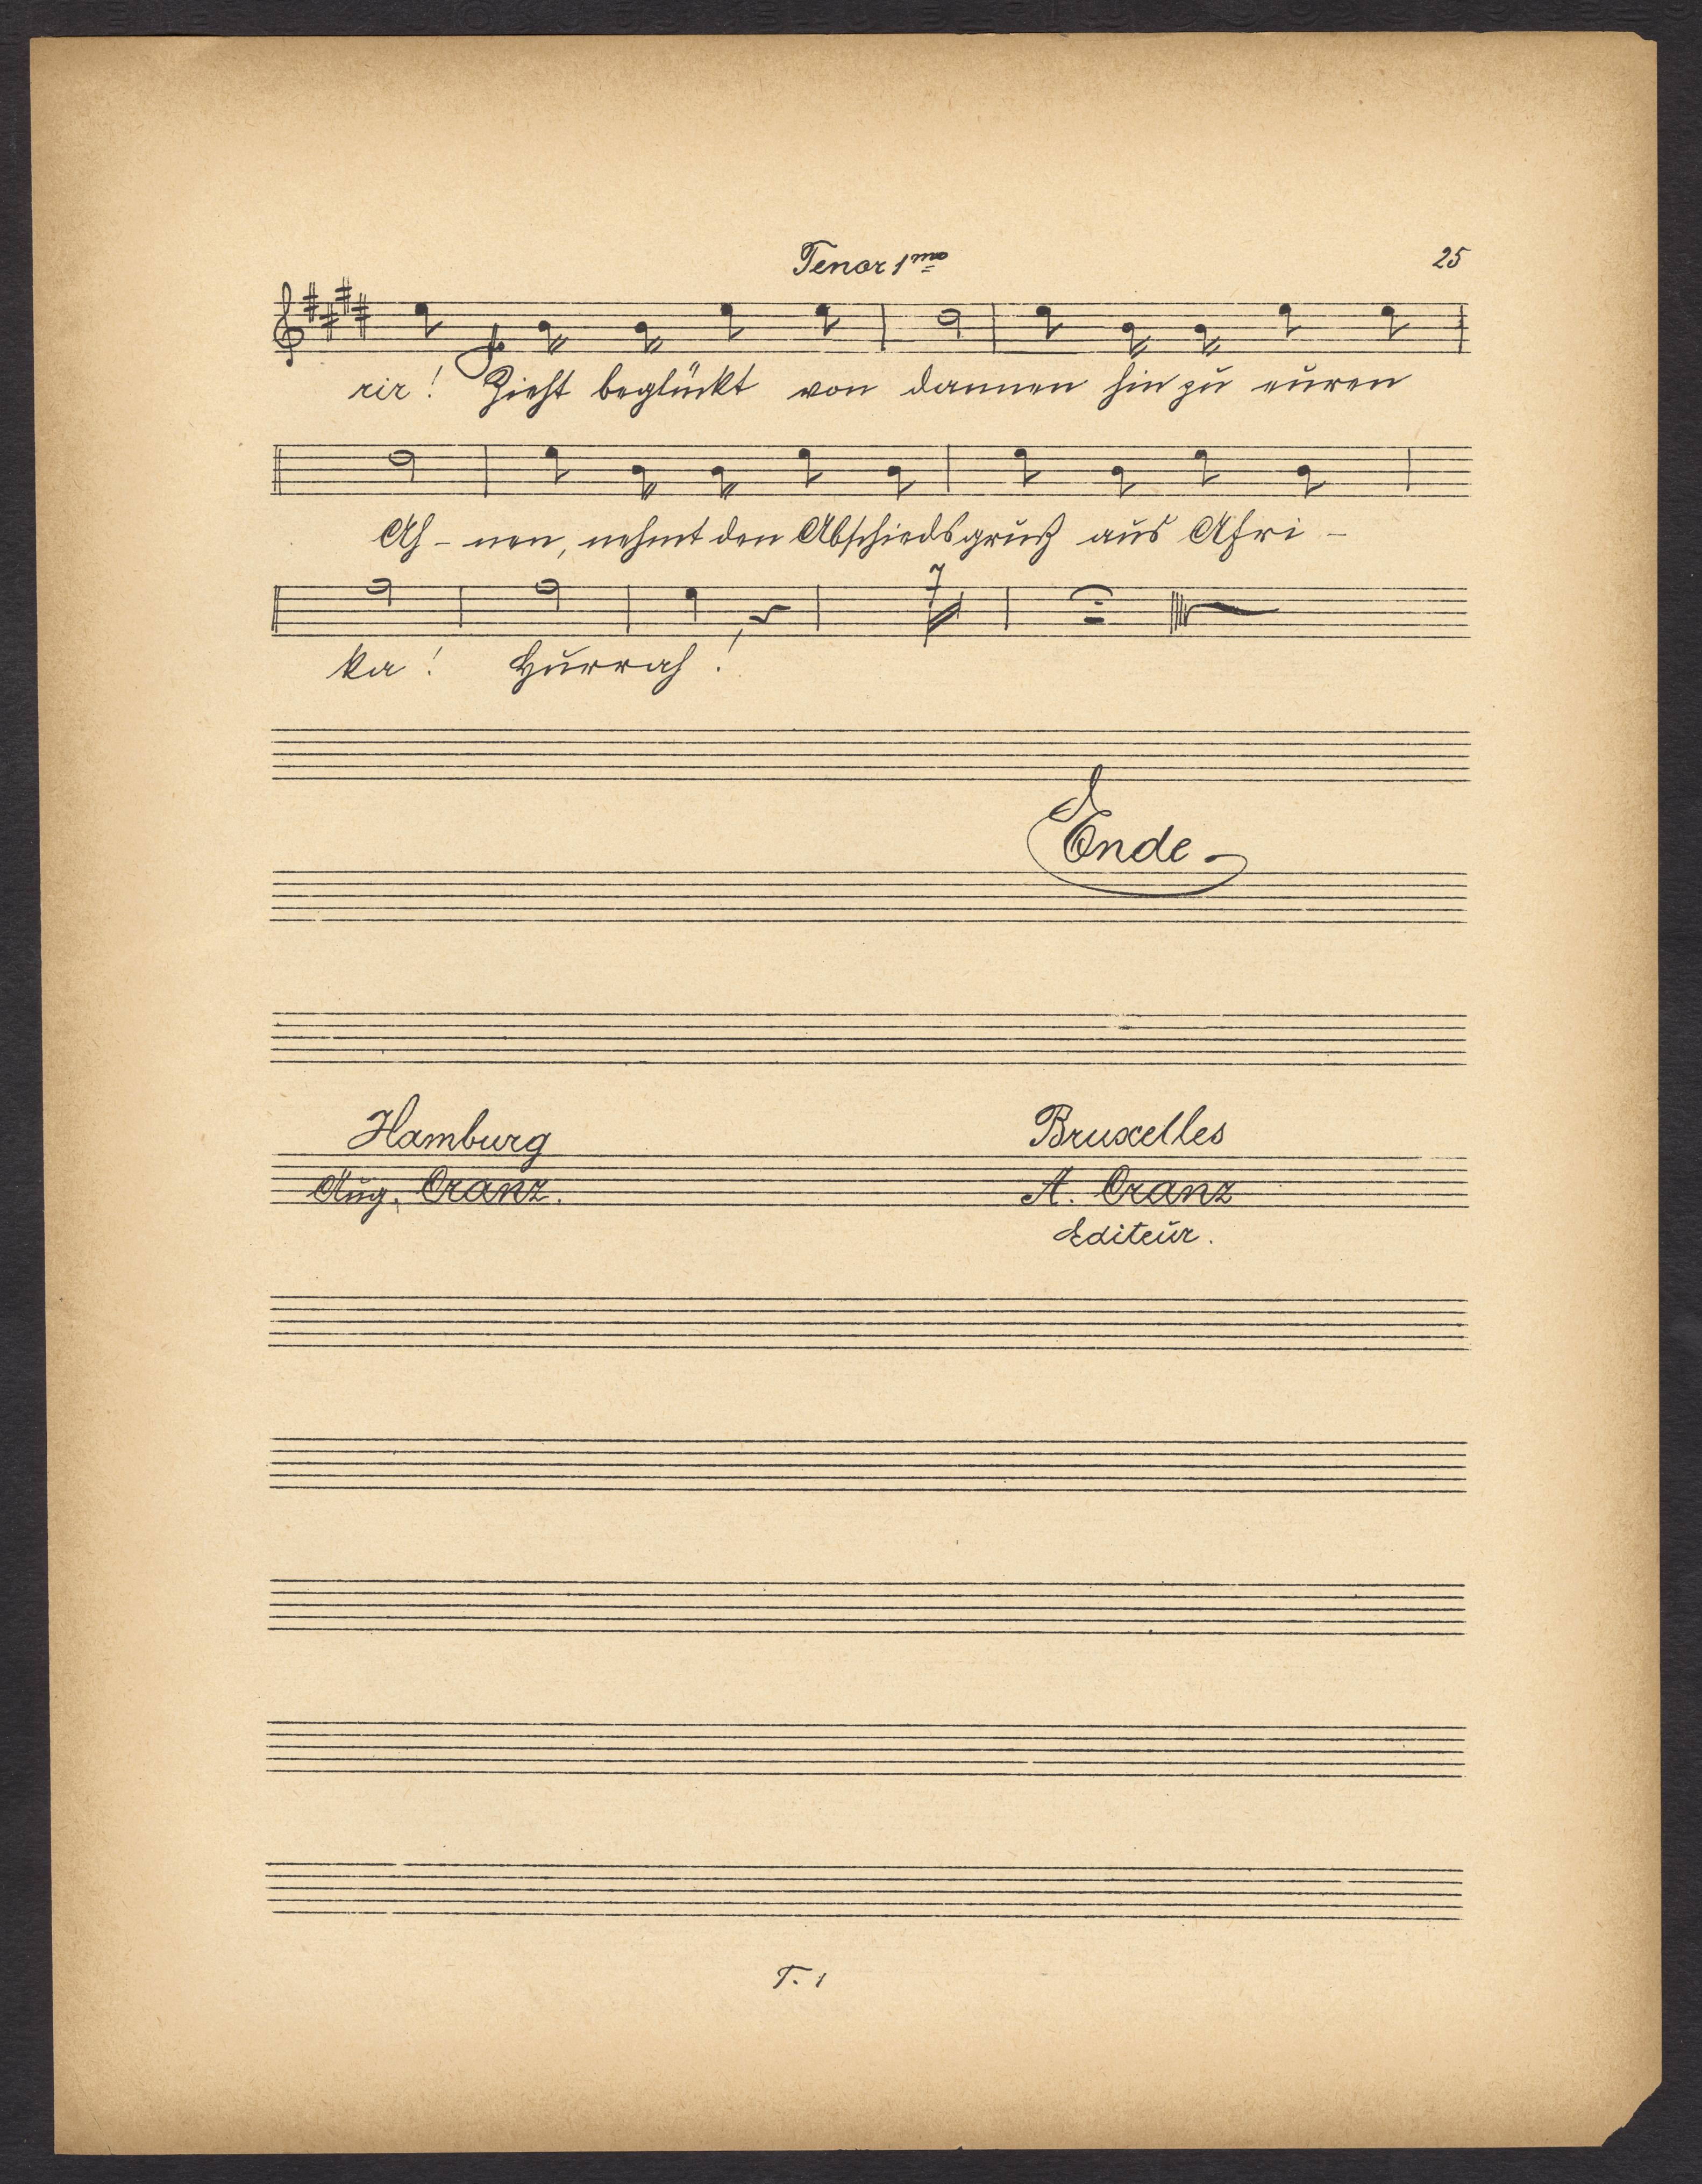 Tenor 1mo
25
rir! Zieht beglückt von dannen hin zu euren
Ah - nen, nehmt den Abschiedsgruß aus Afri -
ka! Hurrah!
7
Ende
Hamburg
Bruxelles
Aug. Cranz.
A. Cranz
Editeur.
T. 1